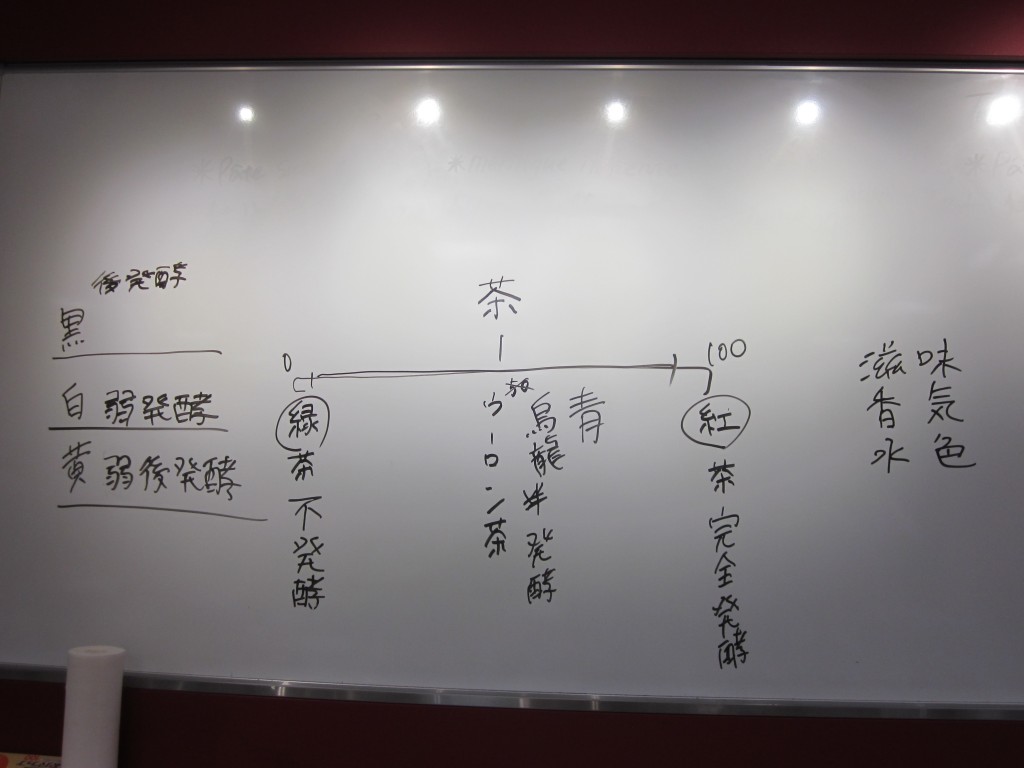 後発酵
黒
白 弱発酵
黄 弱後発酵
茶
0
100
緑茶 不発酵
ウーロン茶
烏龍 半発酵
青
紅茶 完全発酵
滋味
香気
水色